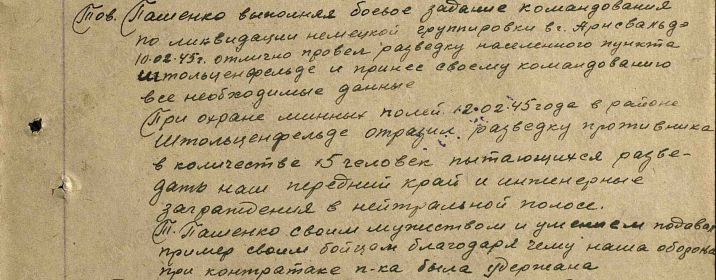 Тов. Пашенко выполняя боевое задание командования
по ликвидации немецкой группировки в г. Арнсвальде
10.02.45г. отлично провел разведку населенного пункта
Штольценфельде и принес своему командованию
все необходимые данные
При охране минных полей 12.02.45 года в районе
Штольценфельде отразил разведку противника
в количестве 15 человек пытающихся разве-
дать наш передний край и инженерные
заграждения в нейтральной полосе.
Т. Пашенко своим мужеством и умением подавал
пример своим бойцам благодаря чему наша оборона
при контратаке п-ка была удержана